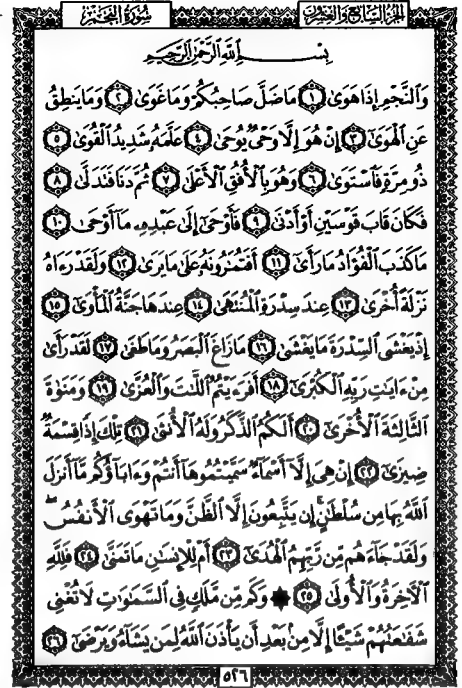 سورة النجم الجزء السابع والعشرون
بسم الله الرحمن الرحيم
وَالنَّجْمِ إِذَا هَوَىٰ ﴿١﴾ مَا ضَلَّ صَاحِبُكُمْ وَمَا غَوَىٰ ﴿٢﴾ وَمَا يَنطِقُ
عَنِ الْهَوَىٰ ﴿٣﴾ إِنْ هُوَ إِلَّا وَحْيٌ يُوحَىٰ ﴿٤﴾ عَلَّمَهُ شَدِيدُ الْقُوَىٰ ﴿٥﴾
ذُو مِرَّةٍ فَاسْتَوَىٰ ﴿٦﴾ وَهُوَ بِالْأُفُقِ الْأَعْلَىٰ ﴿٧﴾ ثُمَّ دَنَا فَتَدَلَّىٰ ﴿٨﴾
فَكَانَ قَابَ قَوْسَيْنِ أَوْ أَدْنَىٰ ﴿٩﴾ فَأَوْحَىٰ إِلَىٰ عَبْدِهِ مَا أَوْحَىٰ ﴿١٠﴾
مَا كَذَبَ الْفُؤَادُ مَا رَأَىٰ ﴿١١﴾ أَفَتُمَٰرُونَهُ عَلَىٰ مَا يَرَىٰ ﴿١٢﴾ وَلَقَدْ رَءَاهُ
نَزْلَةً أُخْرَىٰ ﴿١٣﴾ عِندَ سِدْرَةِ الْمُنتَهَىٰ ﴿١٤﴾ عِندَهَا جَنَّةُ الْمَأْوَىٰ ﴿١٥﴾
إِذْ يَغْشَى السِّدْرَةَ مَا يَغْشَىٰ ﴿١٦﴾ مَا زَاغَ الْبَصَرُ وَمَا طَغَىٰ ﴿١٧﴾ لَقَدْ رَأَىٰ
مِنْ ءَايَٰتِ رَبِّهِ الْكُبْرَىٰ ﴿١٨﴾ أَفَرَءَيْتُمُ اللَّٰتَ وَالْعُزَّىٰ ﴿١٩﴾ وَمَنَوٰةَ
الثَّالِثَةَ الْأُخْرَىٰ ﴿٢٠﴾ أَلَكُمُ الذَّكَرُ وَلَهُ الْأُنثَىٰ ﴿٢١﴾ تِلْكَ إِذًا قِسْمَةٌ
ضِيزَىٰ ﴿٢٢﴾ إِنْ هِيَ إِلَّا أَسْمَاءٌ سَمَّيْتُمُوهَا أَنتُمْ وَءَابَاؤُكُم مَّا أَنزَلَ
اللَّهُ بِهَا مِن سُلْطَٰنٍ ۚ إِن يَتَّبِعُونَ إِلَّا الظَّنَّ وَمَا تَهْوَى الْأَنفُسُ ۖ
وَلَقَدْ جَاءَهُم مِّن رَّبِّهِمُ الْهُدَىٰ ﴿٢٣﴾ أَمْ لِلْإِنسَٰنِ مَا تَمَنَّىٰ ﴿٢٤﴾ فَلِلَّهِ
الْآخِرَةُ وَالْأُولَىٰ ﴿٢٥﴾ ۞ وَكَم مِّن مَّلَكٍ فِي السَّمَٰوَٰتِ لَا تُغْنِي
شَفَٰعَتُهُمْ شَيْـًٔا إِلَّا مِن بَعْدِ أَن يَأْذَنَ اللَّهُ لِمَن يَشَاءُ وَيَرْضَىٰ ﴿٢٦﴾
٥٢٦